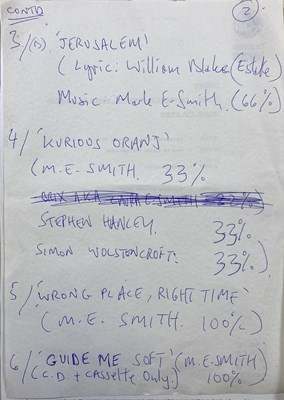 CONTD
2
3/(B) 'JERUSALEM'
(Lyric: William Blake (Estate)
Music Mark E-Smith. (66%)
4/ 'KURIOUS ORANJ'
(M.E. SMITH. 33%
STEPHEN HANLEY. 33%
SIMON WOLSTENCROFT. 33%)
5/ 'WRONG PLACE, RIGHT TIME'
(M.E. SMITH. 100%)
6/ 'GUIDE ME SOFT' (M.E-SMITH)
(C.D + CASSETTE Only.) 100%